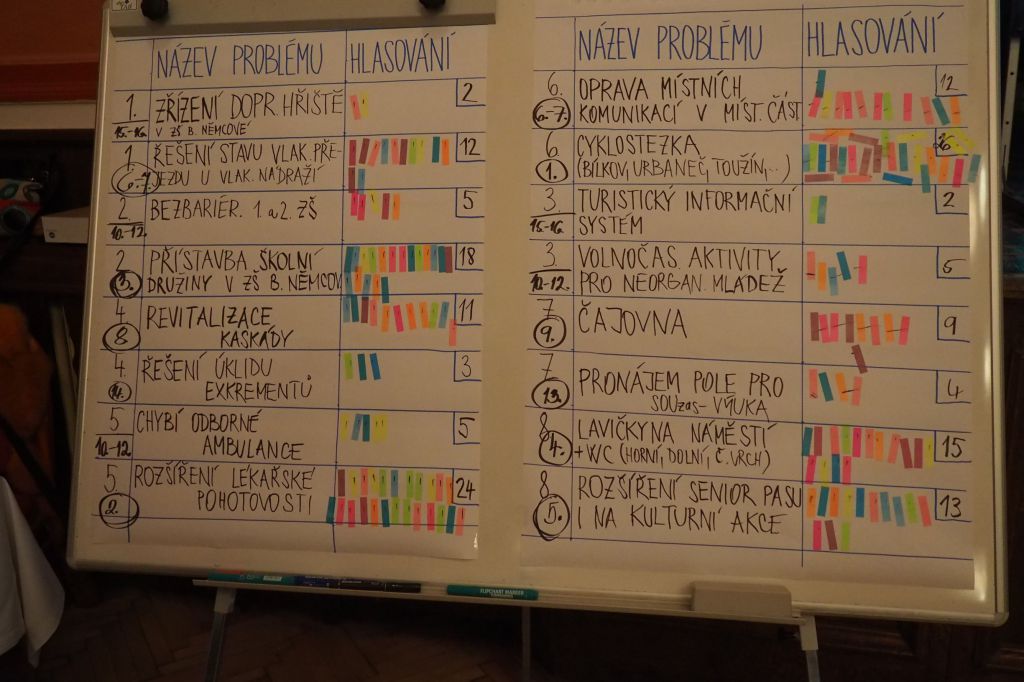 NÁZEV PROBLÉMU HLASOVÁNÍ
1. ZŘÍZENÍ DOPR. HŘIŠTĚ 2
15.-16. V ZŠ B. NĚMCOVÉ
1 ŘEŠENÍ STAVU VLAK. PŘE- 12
6.-7. JEZDU U VLAK. NÁDRAŽÍ
2. BEZBARIÉR. 1. a 2. ZŠ 5
10.-12.
2 PŘÍSTAVBA ŠKOLNÍ 18
3. DRUŽINY V ZŠ B. NĚMCOV
4 REVITALIZACE 11
8 KASKÁDY
4. ŘEŠENÍ ÚKLIDU 3
14. EXKREMENTŮ
5 CHYBÍ ODBORNÉ 5
10.-12. AMBULANCE
5 ROZŠÍŘENÍ LÉKAŘSKÉ 24
2. POHOTOVOSTI
NÁZEV PROBLÉMU HLASOVÁNÍ
6. OPRAVA MÍSTNÍCH 12
6.-7. KOMUNIKACÍ V MÍST. ČÁST
6 CYKLOSTEZKA
1. (BÍLKOV, URBANEČ, TOUŽÍN,..)
3. TURISTICKÝ INFORMAČNÍ 2
15.-16. SYSTÉM
3. VOLNOČAS. AKTIVITY 5
10.-12. PRO NEORGAN. MLÁDEŽ
7 ČAJOVNA 9
9.
7 PRONÁJEM POLE PRO 4
13. SOUzaS - VÝUKA
8 LAVIČKY NA NÁMĚSTÍ 15
4. + WC (HORNÍ, DOLNÍ, Č. VRCH)
8 ROZŠÍŘENÍ SENIOR PASU 13
5. I NA KULTURNÍ AKCE
FLIPCHART MARKER